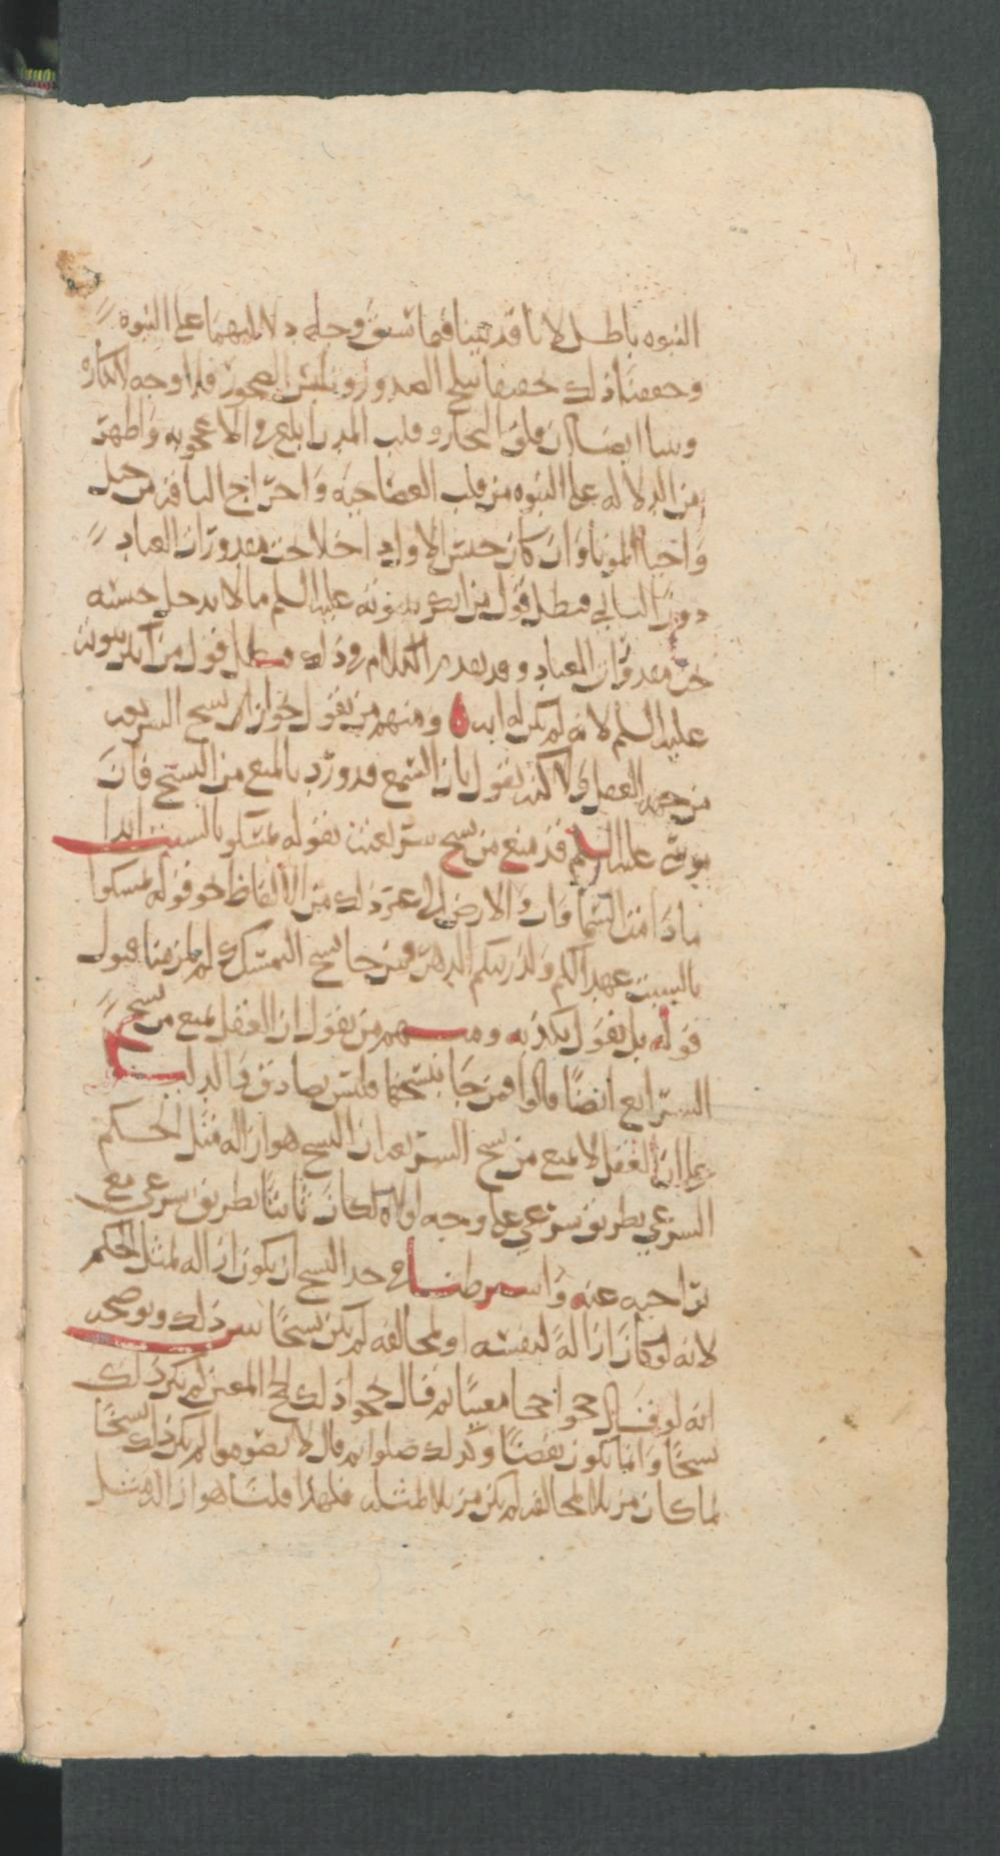 النبوه باطل لانا قد بينا فيما سبق وجله دلالتهما على النبوه
وحققنا ذلك تحقيقا يثلج الصدور ويلين الصخور فلا وجه لانكاره
وبينا ايضا ان فلق البحار وقلب المدن ابلغ في الاعجوبه واظهر
من الدلاله على النبوه من قلب العصا حيه واخراج الناقه من جبل
واحيا الموتا وان كان جنس الاول داخلا تحت مقدورات العباد
دون الثاني فبطل قول من انكر نبوته عليه السلم ما لا يدخل جنسه
تحت مقدورات العباد وقد تقدم الكلام في ذلك فبطل قول من انكر نبوته
عليه السلم لانه لم يكن له ايه ومنهم من يقول بجواز نسخ الشريعه
من جهه العقل ولاكنه يقول بان السمع قد ورد بالمنع من النسخ فان
موسى عليه السلم قد منع من نسخ شريعته بقوله تمسكو بالسبت ابدا
ما دامت السماوات والارض الى غير ذلك من الالفاظ نحو قوله تمسكوا
بالسبت عهدا لكم ولذريتكم الدهر فمن جا بنسخ التمسك لم يلزمنا قبول
قوله بل نقول بكذبه ومنهم من يقول ان العقل يمنع من نسخ
الشرايع ايضا قالوا فمن جا بنسخها فليس بصادق والدليل
على ان العقل لا يمنع من نسخ الشريعه ان النسخ هو ازاله مثل الحكم
الشرعي بطريق شرعي على وجه لولاه لكان ثابتا بطريق شرعي مع
تراخيه عنه واشترطنا في حد النسخ ان يكون ازاله لمثل الحكم
لانه لو كان ازالةً لنفسه او لمخالفه لم يكن نسخا بين ذلك ويوضحه
انه لو قال حجوا حجا معينا ثم قال لا تحجوا ذلك الحج المعين لم يكن ذلك
نسخا وانما يكون نقضا وكذلك صلوا ثم قال لا تصوموا لم يكن ذلك نسخا
لما كان مزيلا لمخالفه لم يكن مزيلا لمثله فلهذا قلنا هو ازاله مثل